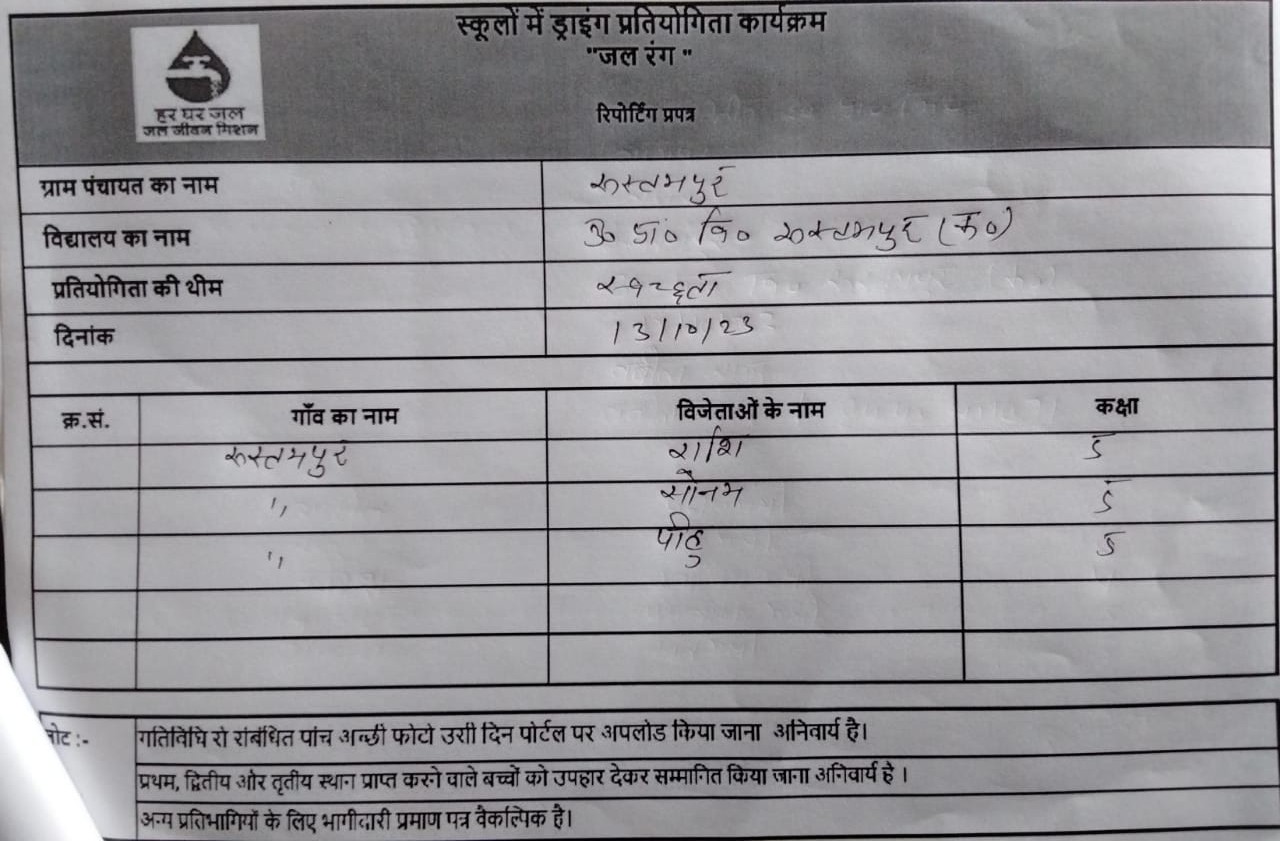 स्कूलों में ड्राइंग प्रतियोगिता कार्यक्रम
"जल रंग "
हर घर जल
जल जीवन मिशन
रिपोर्टिंग प्रपत्र
ग्राम पंचायत का नाम रूस्तमपुर
विद्यालय का नाम उ० प्रा० वि० रूस्तमपुर (क०)
प्रतियोगिता की थीम स्वच्छता
दिनांक 13/10/23
क्र.सं. गाँव का नाम विजेताओं के नाम कक्षा
रूस्तमपुर राशि 5
" सोनम 5
" पीहु 5
नोट :- गतिविधि से संबंधित पांच अच्छी फोटो उसी दिन पोर्टल पर अपलोड किया जाना अनिवार्य है।
प्रथम, द्वितीय और तृतीय स्थान प्राप्त करने वाले बच्चों को उपहार देकर सम्मानित किया जाना अनिवार्य है ।
अन्य प्रतिभागियों के लिए भागीदारी प्रमाण पत्र वैकल्पिक है।